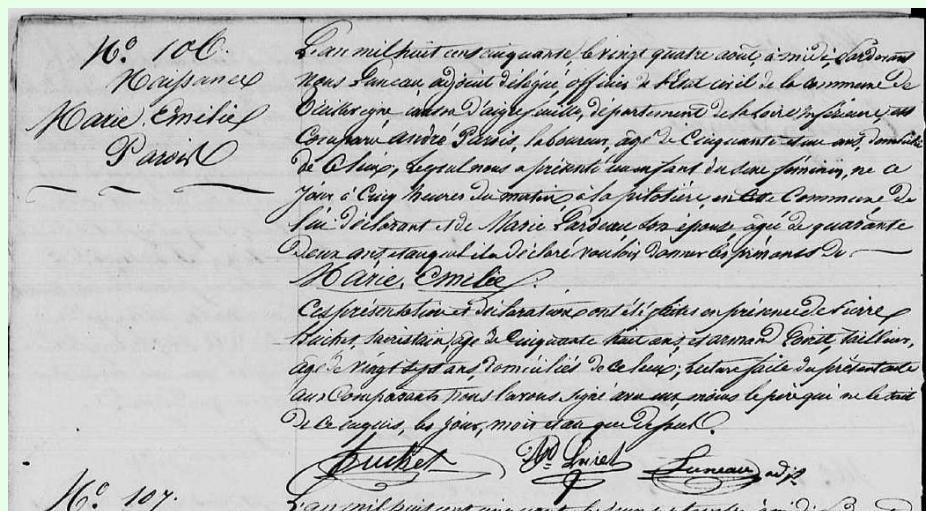 N.o 106.
Naissance
Marie Emelie
Parois
L'an mil huit cent cinquante, le vingt quatre août, à midi, Pardevant
Nous Luneau adjoint délégué officier de l'Etat civil de la Commune de
Vieillevigne canton d'aigrefeuille, département de la Loire Inférieure, est
Comparu andré Parois, laboureur, âgé de Cinquante et un ans, domicilié
de Ce lieu, Lequel nous a présenté un enfant du sexe féminin, né ce
jour à Cinq heures du matin à la filotière, en cette Commune de
lui déclarant et de Marie Pardeau son épouse âgée de quarante
deux ans et auquel il a déclaré vouloir donner les prénoms de
Marie, Emelie.
Ces présentation et déclaration ont été faites en présence de Pierre
Buchet, sacristain, âgé de Cinquante huit ans, et armand Loiret, tailleur,
âgé de vingt sept ans, domiciliés de Ce lieu; Lecture faite du présent acte
aux Comparants Nous l'avons signé avec eux moins le père qui ne le sait
de Ce enquis, les jour, mois et an que dessus.
Buchet Ad Loiret Luneau adj.
N.o 107.
L'an mil huit cent cinquante